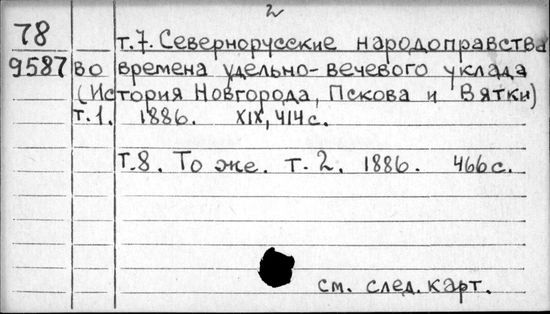 2
78 т.7. Севернорусские народоправства
9587 во времена удельно-вечевого уклада
(История Новгорода, Пскова и Вятки)
т.1. 1886. XIX, 414 с.
т.8. То же. т.2. 1886. 466 с.
см. след. карт.